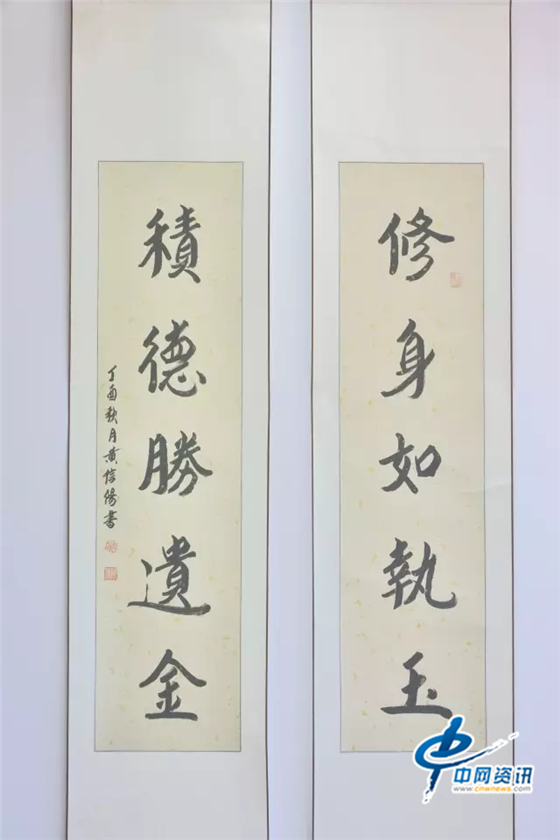 修身如執玉
積德勝遺金
丁酉秋月黄信陽書
中网资讯
www.cnwnews.com